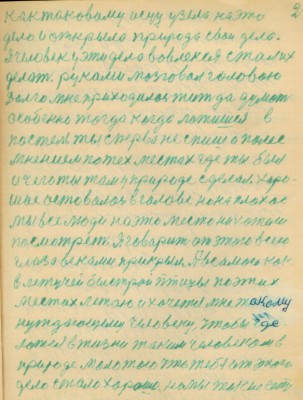 2
как таковому и суу узела на это
дело и открыла природа свои дела.
Я человек у эти дела вовлекся стал их
делат. руками мозговал головою
Долго мне приходилос тут да думат
особено тогда когда ложишся в
постел ты сперва не спиш о полес
мнением по тех местах где ты был
и чего ты там у природе сделал хоро-
шае осталось в голове но на плохое
мы все люди на это место не хотим
посмотрет. Я говарю от этого всего
глаза веками прикрыл. А я сам как
в летучей быстрой птицы по этих
местах летаю и хочется мне такому
нуждающему человеку, чтобы он где
ложе в жизни таким человеком в
природе молотого что тебя от этого
дело стало хорошо, но мы такие